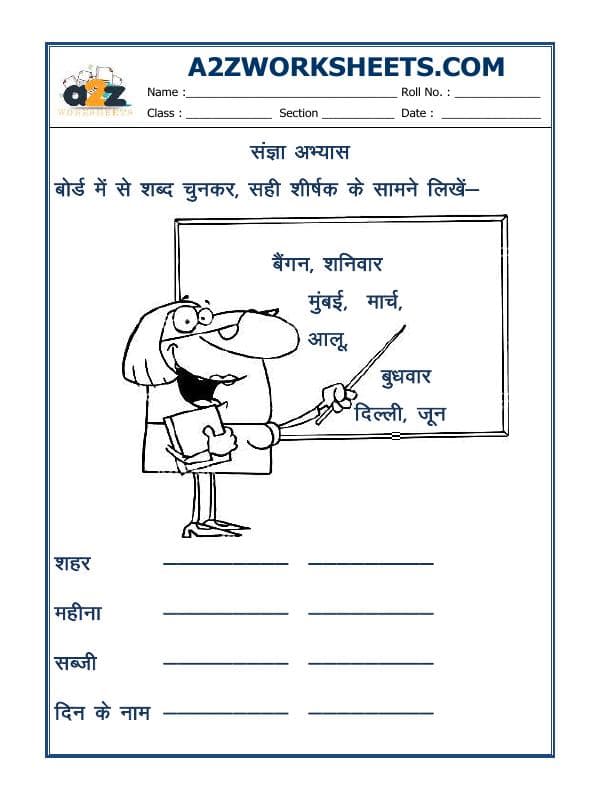 A2ZWORKSHEETS.COM
a2z
WORKSHEETS
Name :______________________ Roll No. : ____________
Class : ____________ Section __________ Date : ______________
संज्ञा अभ्यास
बोर्ड में से शब्द चुनकर, सही शीर्षक के सामने लिखें–
बैंगन, शनिवार
मुंबई, मार्च,
आलू,
बुधवार
दिल्ली, जून
शहर ____________ ____________
महीना ____________ ____________
सब्जी ____________ ____________
दिन के नाम ____________ ____________